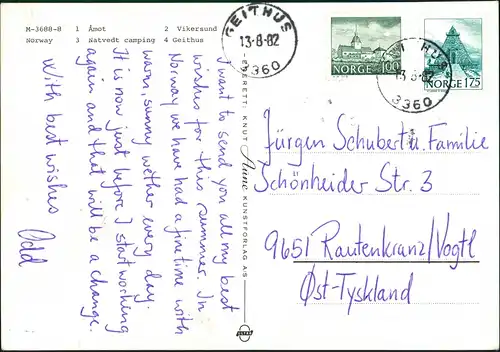 M-3688-8 1 Åmot 2 Vikersund
Norway 3 Natvedt camping 4 Geithus
I want to send you all my best
wishes for this summer. In
Norway we have had a fine time with
warm, sunny wether every day.
It is now just before I start working
again and that will be a change.
With best wishes
Odd
ENERETT: KNUT Aune KUNSTFORLAG A/S
ULTRA
GEITHUS
13-8-82
3360
NORGE 100
NORGE 175
13-8-82
3360
Jürgen Schubert u. Familie
Schönheider Str. 3
9651 Rautenkranz/Vogtl
Øst-Tyskland